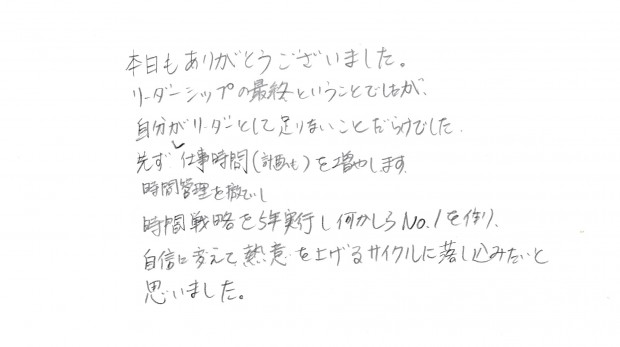 本日もありがとうございました。
リーダーシップの最終ということでしたが、
自分がリーダーとして足りないことだらけでした.
先ず 仕事時間(計画も)を増やします.
時間管理を徹底し
時間戦略を5年実行し何かしらNo.1を作り、
自信に変えて熱意を上げるサイクルに落し込みたいと
思いました。